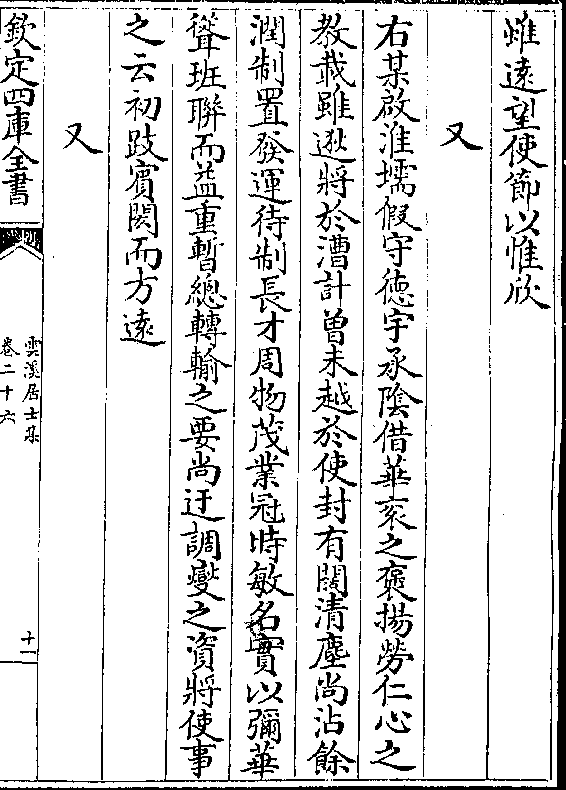 雖遠望使節以惟欣
又
右某啟淮壖假守德宇承隂借華衮之褒揚勞仁心之
教載雖遜將於漕計曽未越於使封有闊清塵尚沾餘
潤制置發運待制長才周物茂業冠時敏名實以彌華
聳班聯而益重暫總轉輸之要尚迂調燮之資將使事
之云初跂賓閎而方遠
又
欽定四庫全書
雲溪居士集
卷二十六
十一